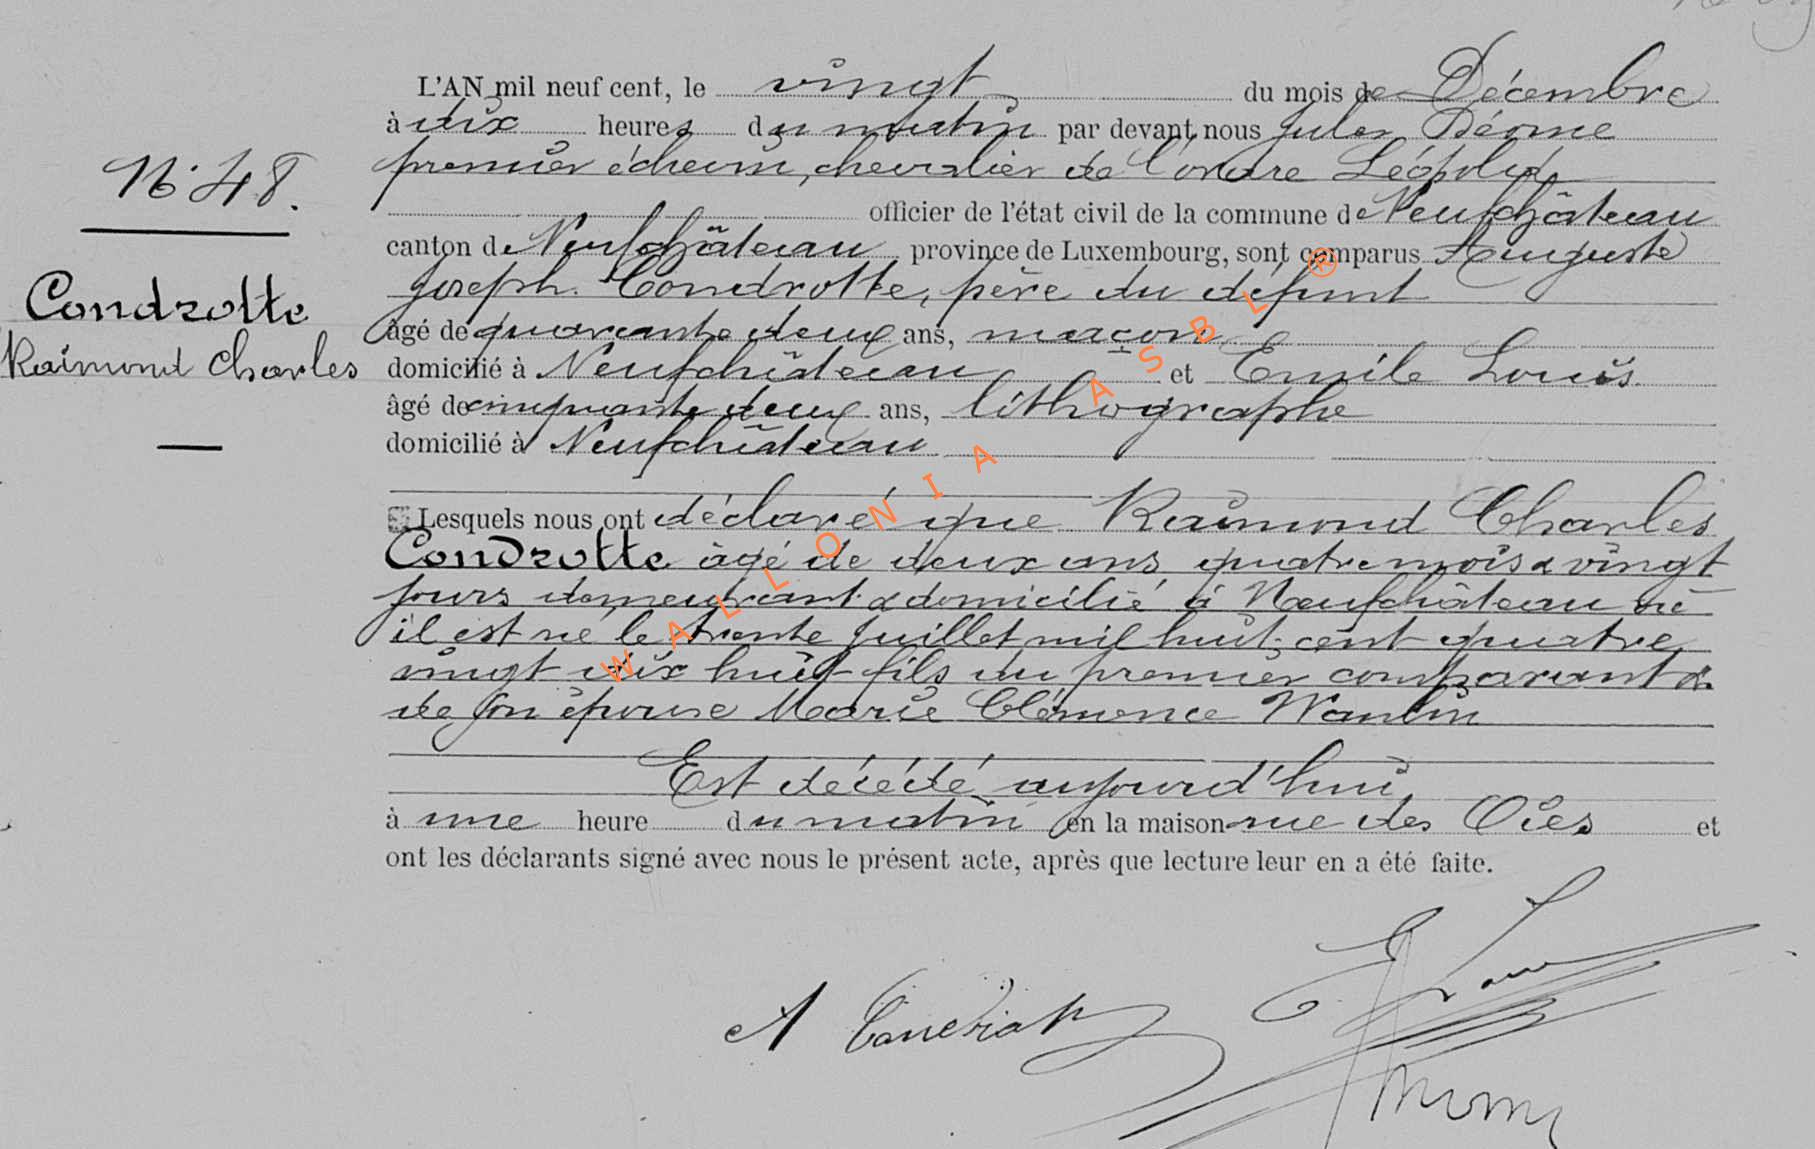 L'AN mil neuf cent, le vingt du mois de Décembre
à dix heures du matin par devant nous Jules Dérome
premier échevin, chevalier de l'ordre Léopold,
officier de l'état civil de la commune de Neufchâteau
N° 48.
canton de Neufchâteau, province de Luxembourg, sont comparus Auguste
Joseph Condrotte, père du défunt
Condrotte
âgé de quarante deux ans, maçon
Raimond Charles
domicilié à Neufchâteau et Emile Louis
âgé de cinquante deux ans, lithographe
domicilié à Neufchâteau
Lesquels nous ont déclaré que Raimond Charles
Condrotte âgé de deux ans quatre mois & vingt
jours demeurant & domicilié à Neufchâteau né
il est né le trente Juillet mil huit cent quatre
vingt dix huit fils du premier comparant &
de son épouse Marie Clémence Wanlin
Est décédé aujourd'hui,
à une heure du matin en la maison rue des Oies et
ont les déclarants signé avec nous le présent acte, après que lecture leur en a été faite.
WALLONIA ASBL ®
A Condrott
E Louis